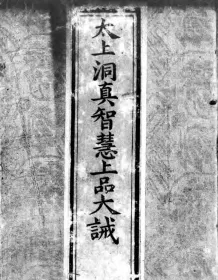 太上洞真智慧上品大誡